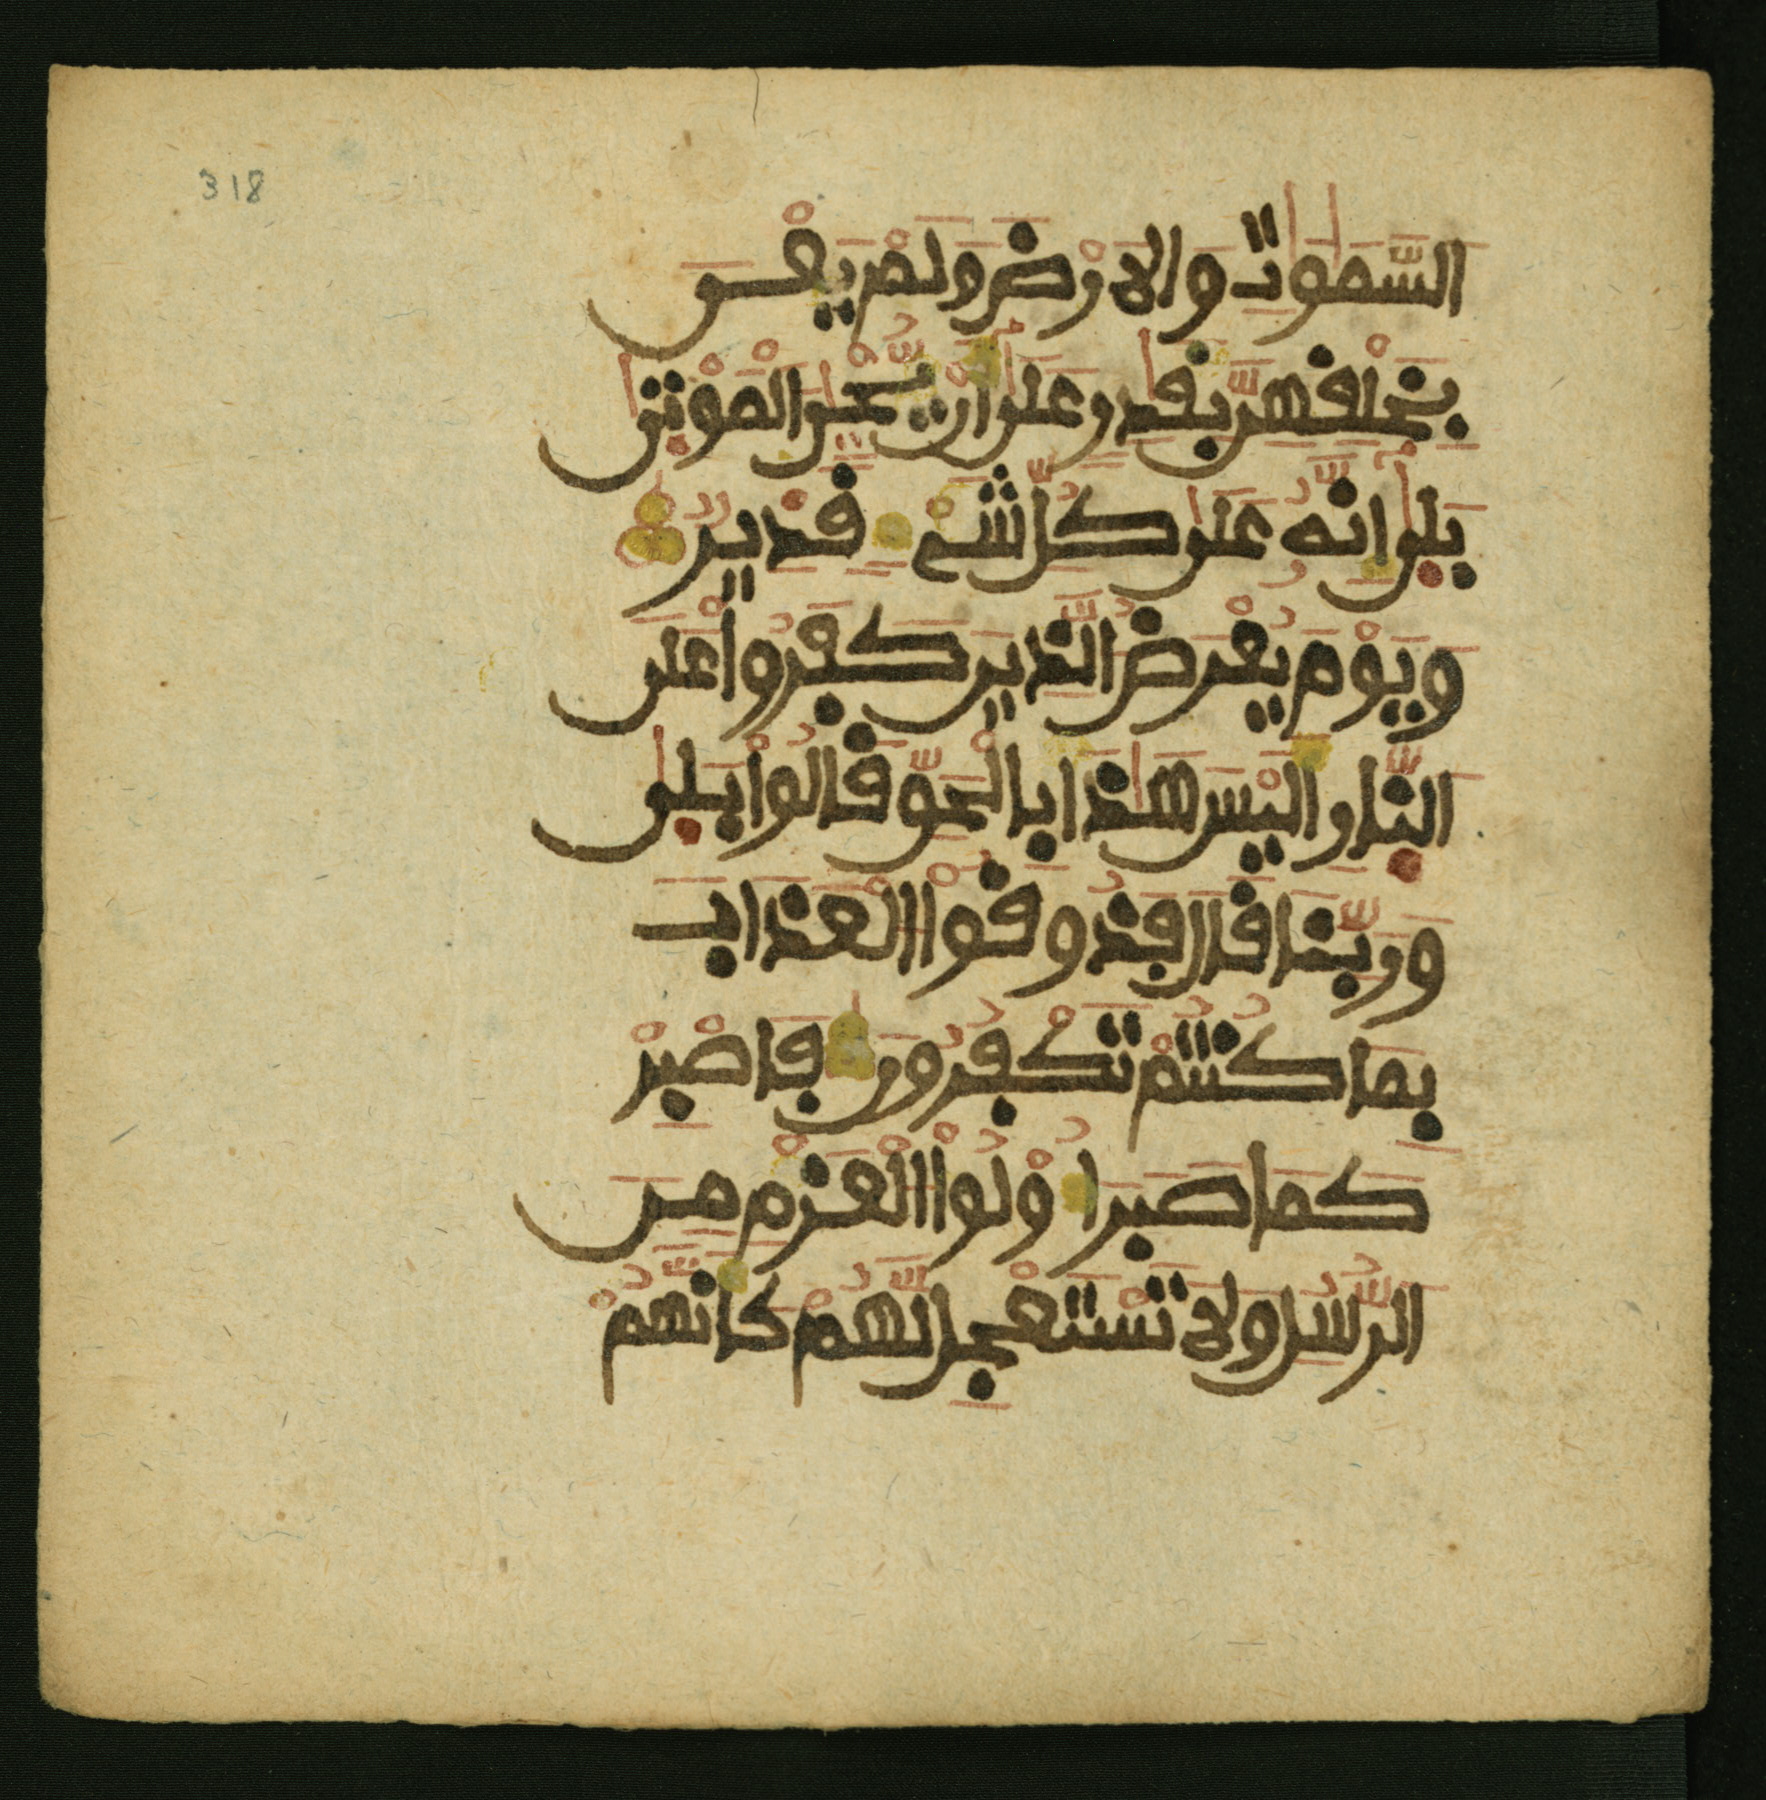 318
السَّمَٰوَٰتِ وَالَارْضَ وَلَمْ يَعْىَ
بِخَلْقِهِنَّ بِقَٰدِرٍ عَلَىٰٓ أَنْ يُّحْۦِىَ الْمَوْتَىٰ
بَلَىٰٓ إِنَّهُۥ عَلَىٰ كُلِّ شَىْءٍ قَدِيرٌ
وَيَوْمَ يُعْرَضُ الَّذِينَ كَفَرُواْ عَلَى
النَّارِ أَلَيْسَ هَٰذَا بِالْحَقِّ قَالُواْ بَلَىٰ
وَرَبِّنَا قَالَ فَذُوقُواْ الْعَذَابَ
بِمَا كُنتُمْ تَكْفُرُونَ فَاصْبِرْ
كَمَا صَبَرَ أُوْلُواْ الْعَزْمِ مِنَ
الرُّسُلِ وَلَا تَسْتَعْجِل لَّهُمْ كَأَنَّهُمْ